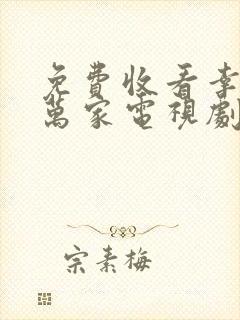 免費收看幸
萬家電視劇
宗素梅